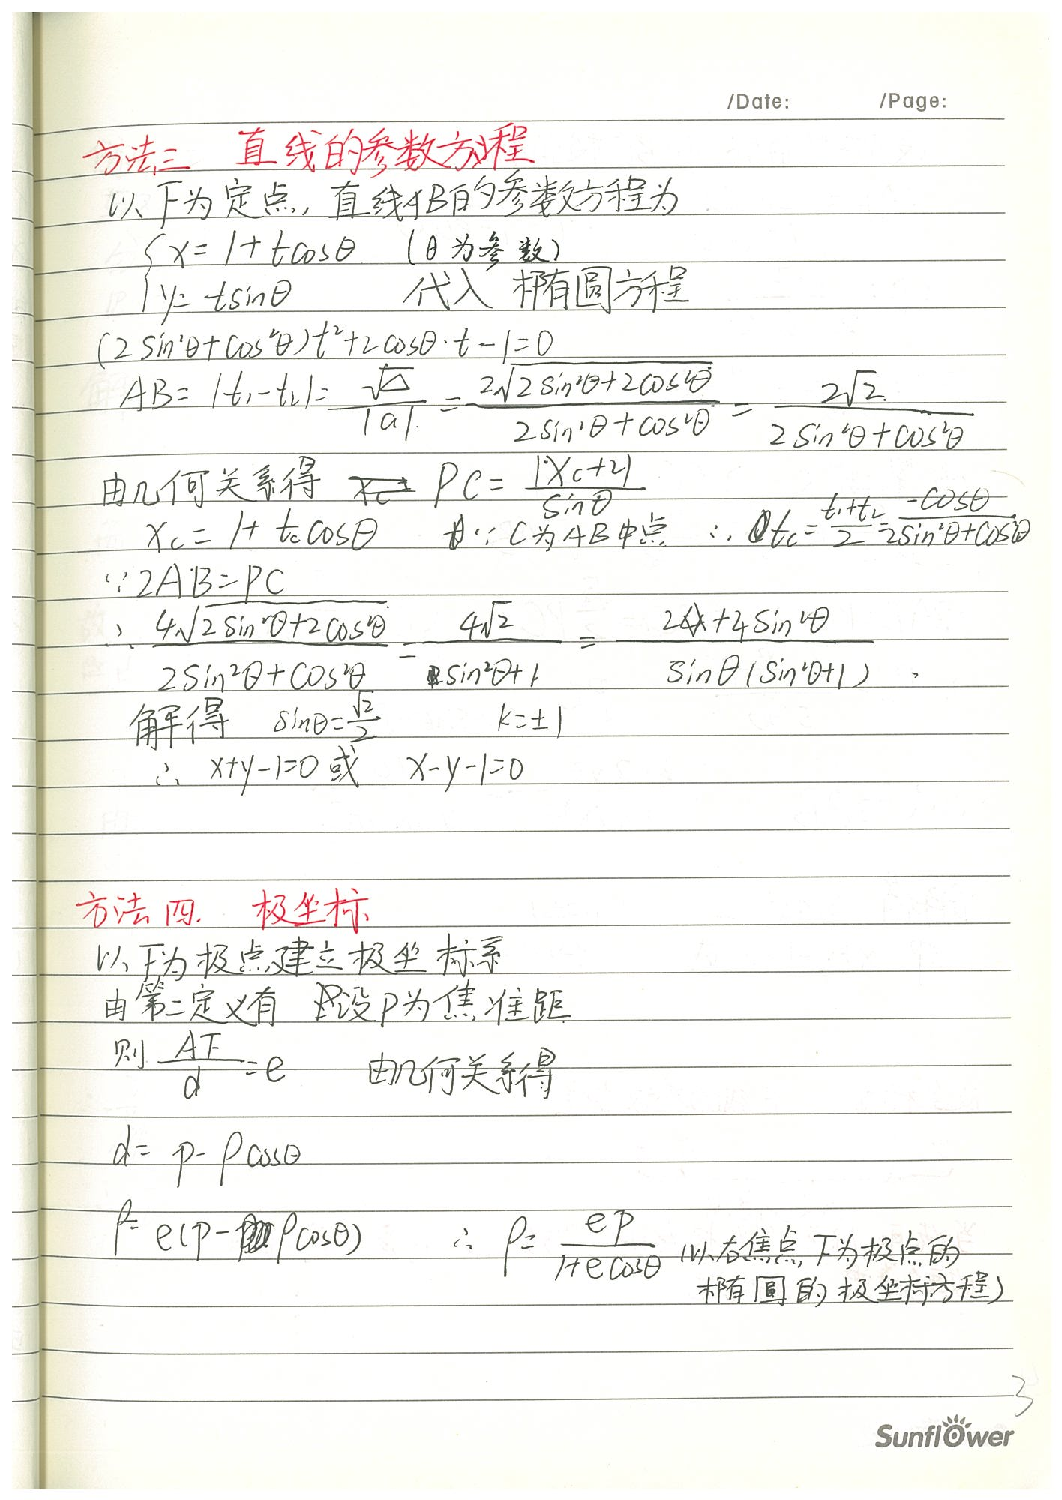 /Date: /Page:
方法三 直线的参数方程
以F为定点，直线AB的参数方程为
{x=1+tcosθ (θ为参数)
y=tsinθ 代入 椭圆方程
(2sin²θ+cos²θ)t²+2cosθ·t-1=0
AB=|t₁-t₂|=√Δ/|a|=2√(2sin²θ+2cos²θ)/(2sin²θ+cos²θ)=2√2/(2sin²θ+cos²θ)
由几何关系得 PC=|Xc+2|/sinθ
Xc=1+tc cosθ ∵C为AB中点 ∴tc=(t₁+t₂)/2=-cosθ/(2sin²θ+cos²θ)
∵2AB=PC
∴ 4√(2sin²θ+2cos²θ)/(2sin²θ+cos²θ)=4√2/(sin²θ+1)=(2+4sin²θ)/(sinθ(sin²θ+1)).
解得 sinθ=√2/2 k=±1
∴ x+y-1=0 或 x-y-1=0
方法四. 极坐标
以F为极点建立极坐标系
由第二定义有 设P为焦准距
则 AF/d=e 由几何关系得
d=p-ρcosθ
ρ=e(p-ρcosθ) ∴ ρ=ep/(1+ecosθ) (以右焦点F为极点的
椭圆的极坐标方程)
3
Sunflower